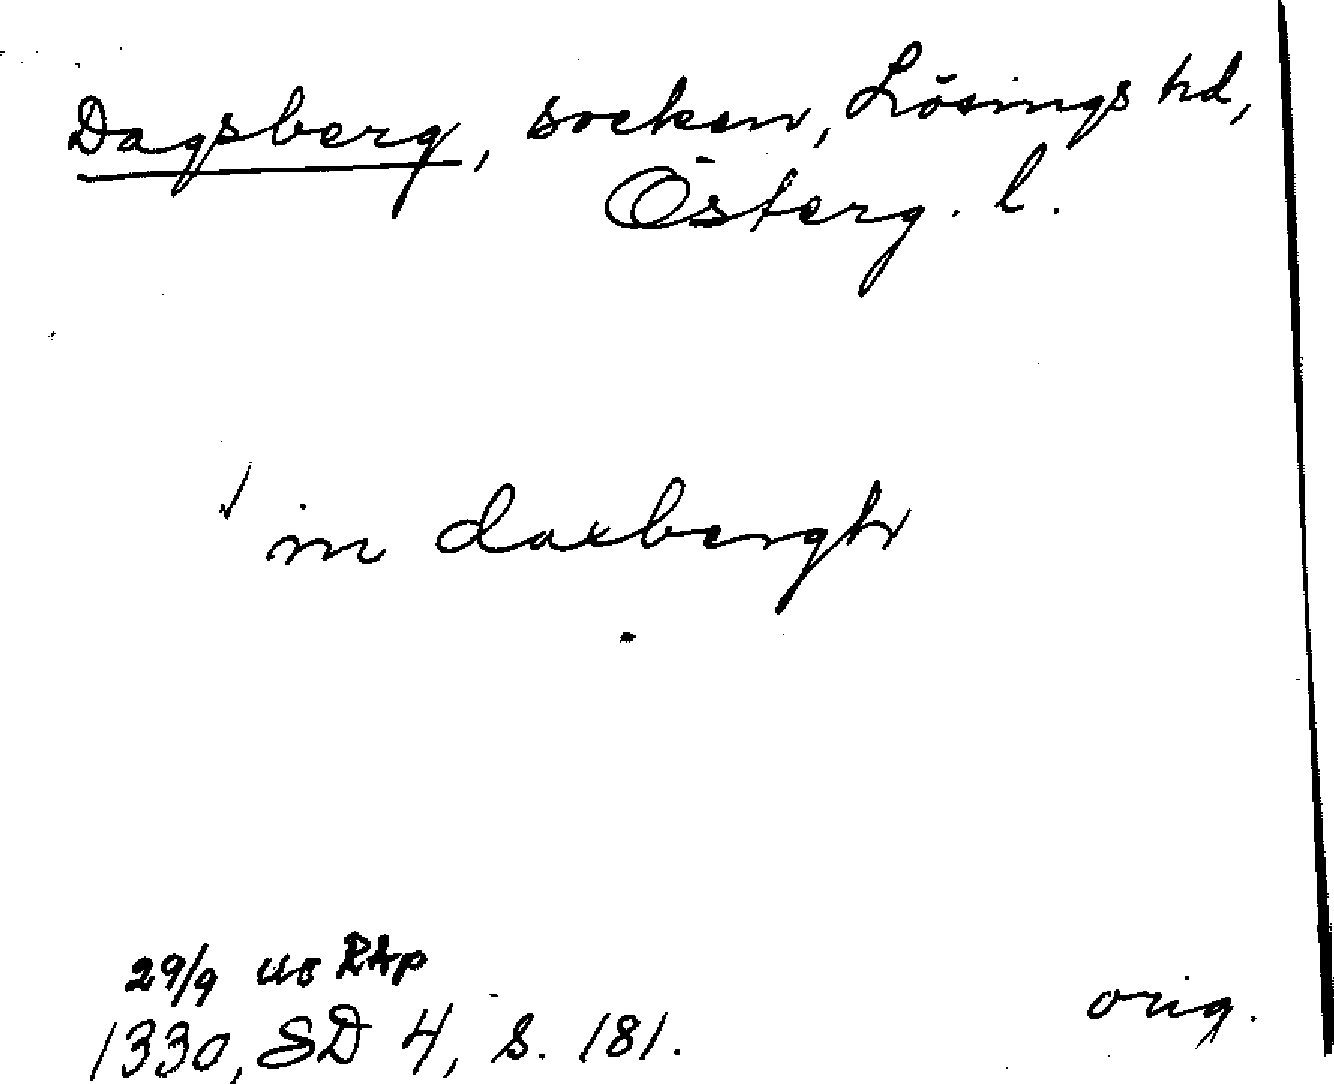 Dagsberg, socken, Lösings hd,
Österg. l.
in daxbergh
29/9 uo RAp
1330, SD 4, s. 181.
orig.